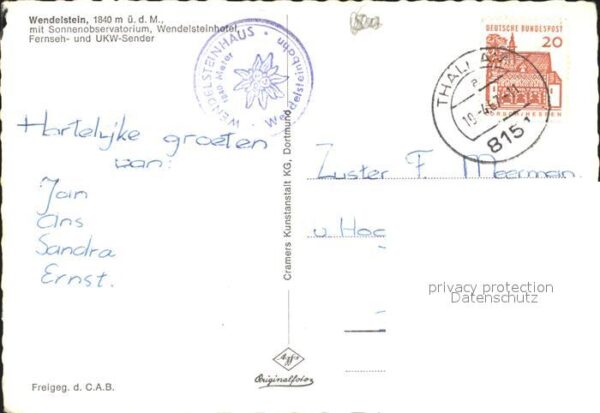 Wendelstein, 1840 m ü. d. M.,
mit Sonnenobservatorium, Wendelsteinhotel
Fernseh- und UKW-Sender
WENDELSTEINHAUS · Wendelsteinbahn ·
1840 Meter
DEUTSCHE BUNDESPOST
20
LORSCH/HESSEN
8151
Hartelijke groeten
van:
Jan
Ans
Sandra
Ernst.
Cramers Kunstanstalt KG, Dortmund
Zuster F. Meerman.
u Hoc
privacy protection
Datenschutz
Agfa
Originalfoto
Freigeg. d. C.A.B.